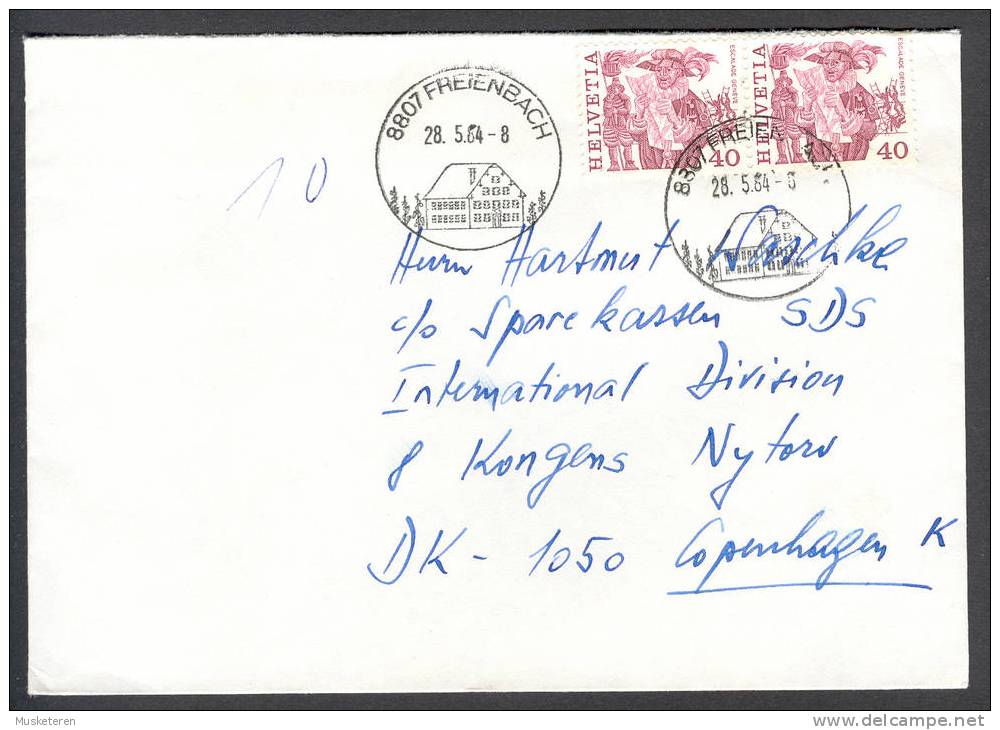 HELVETIA
ESCALADE GENÈVE
40
HELVETIA
ESCALADE GENÈVE
40
8807 FREIENBACH
28. 5.84-8
8807 FREIEN
28. 5.84-8
10
Herrn Hartmut
c/o Sparekassen SDS
International Division
8 Kongens Nytorv
DK - 1050 Copenhagen K
Musketeren
delcampe.net